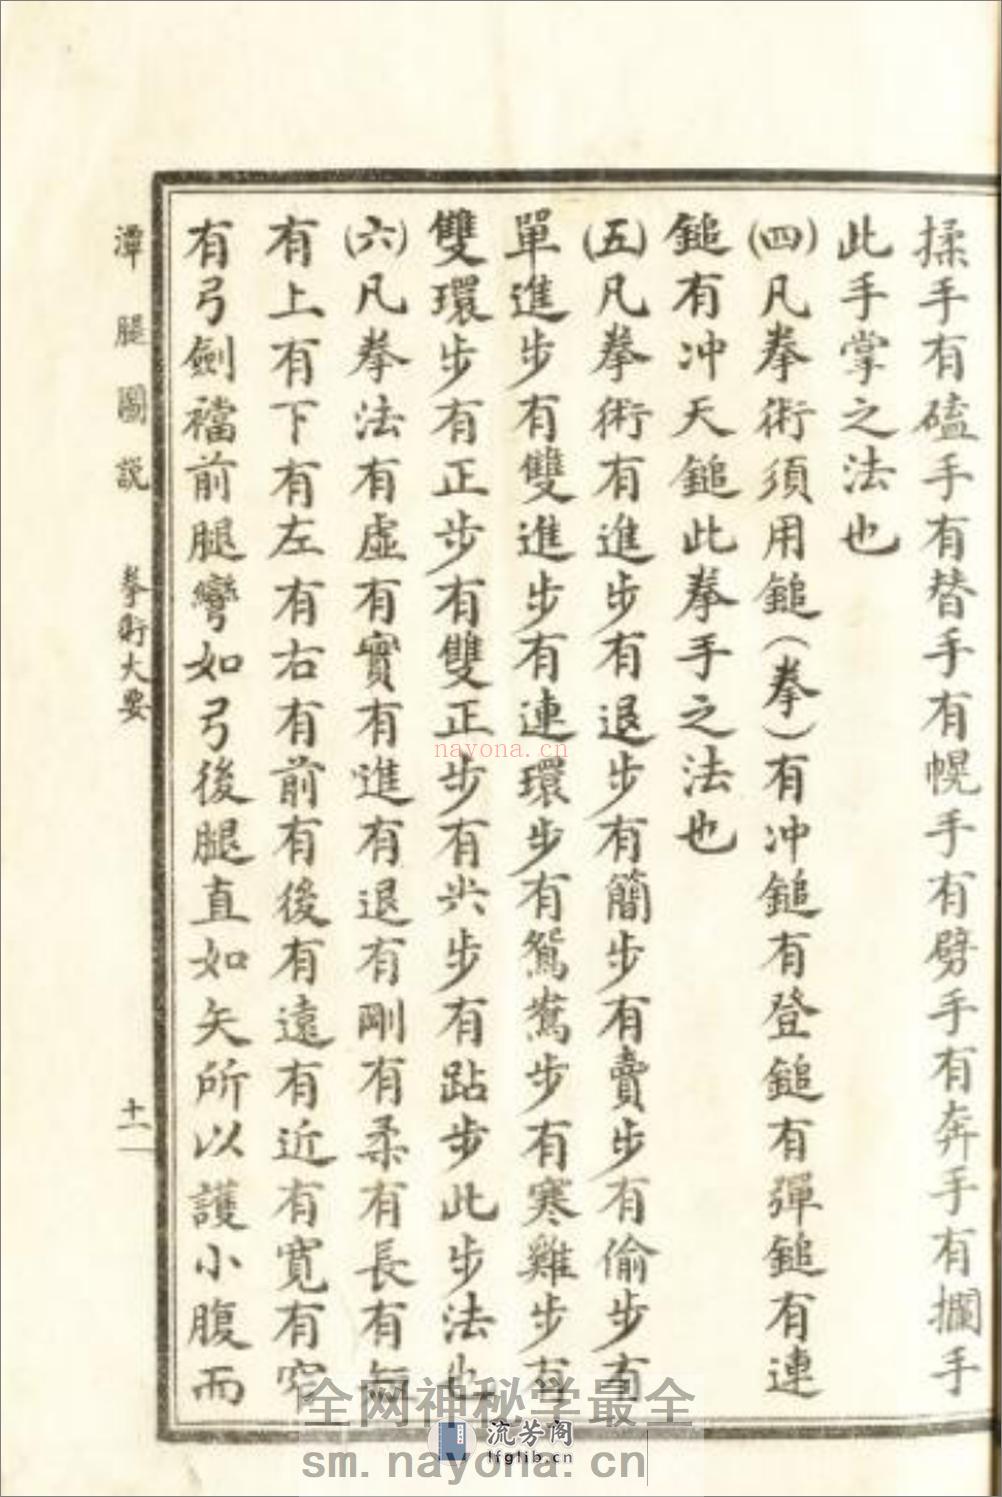 揉手有磕手有替手有幌手有劈手有奔手有攔手
此手掌之法也
(四)凡拳術須用鎚(拳)有冲鎚有登鎚有彈鎚有連
鎚有冲天鎚此拳手之法也
(五)凡拳術有進步有退步有簡步有賣步有偷步有
單進步有雙進步有連環步有鴛鴦步有寒雞步有
雙環步有正步有雙正步有尖步有跕步此步法也
(六)凡拳法有虛有實有進有退有剛有柔有長有短
有上有下有左有右有前有後有遠有近有寬有窄
有弓劍襠前腿彎如弓後腿直如矢所以護小腹而
潭腿圖説 拳術大要 十一
nayona.cn
全网神秘学最全
流芳阁
lfglib.cn
sm.nayona.cn